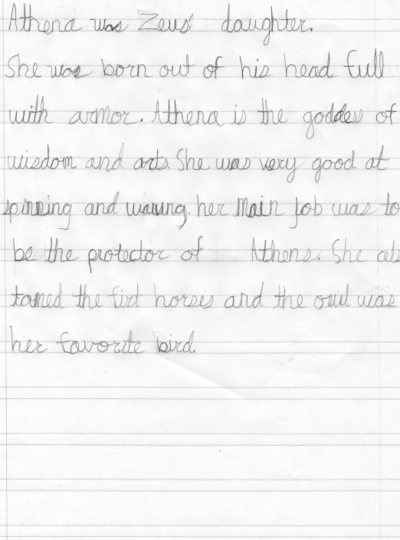 Athena was Zeus' daughter.
She was born out of his head full
with armor. Athena is the goddess of
wisdom and arts. She was very good at
spinning and waving. her main job was to
be the protector of Athens. She als
tamed the firt horses and the owl was
her favorite bird.